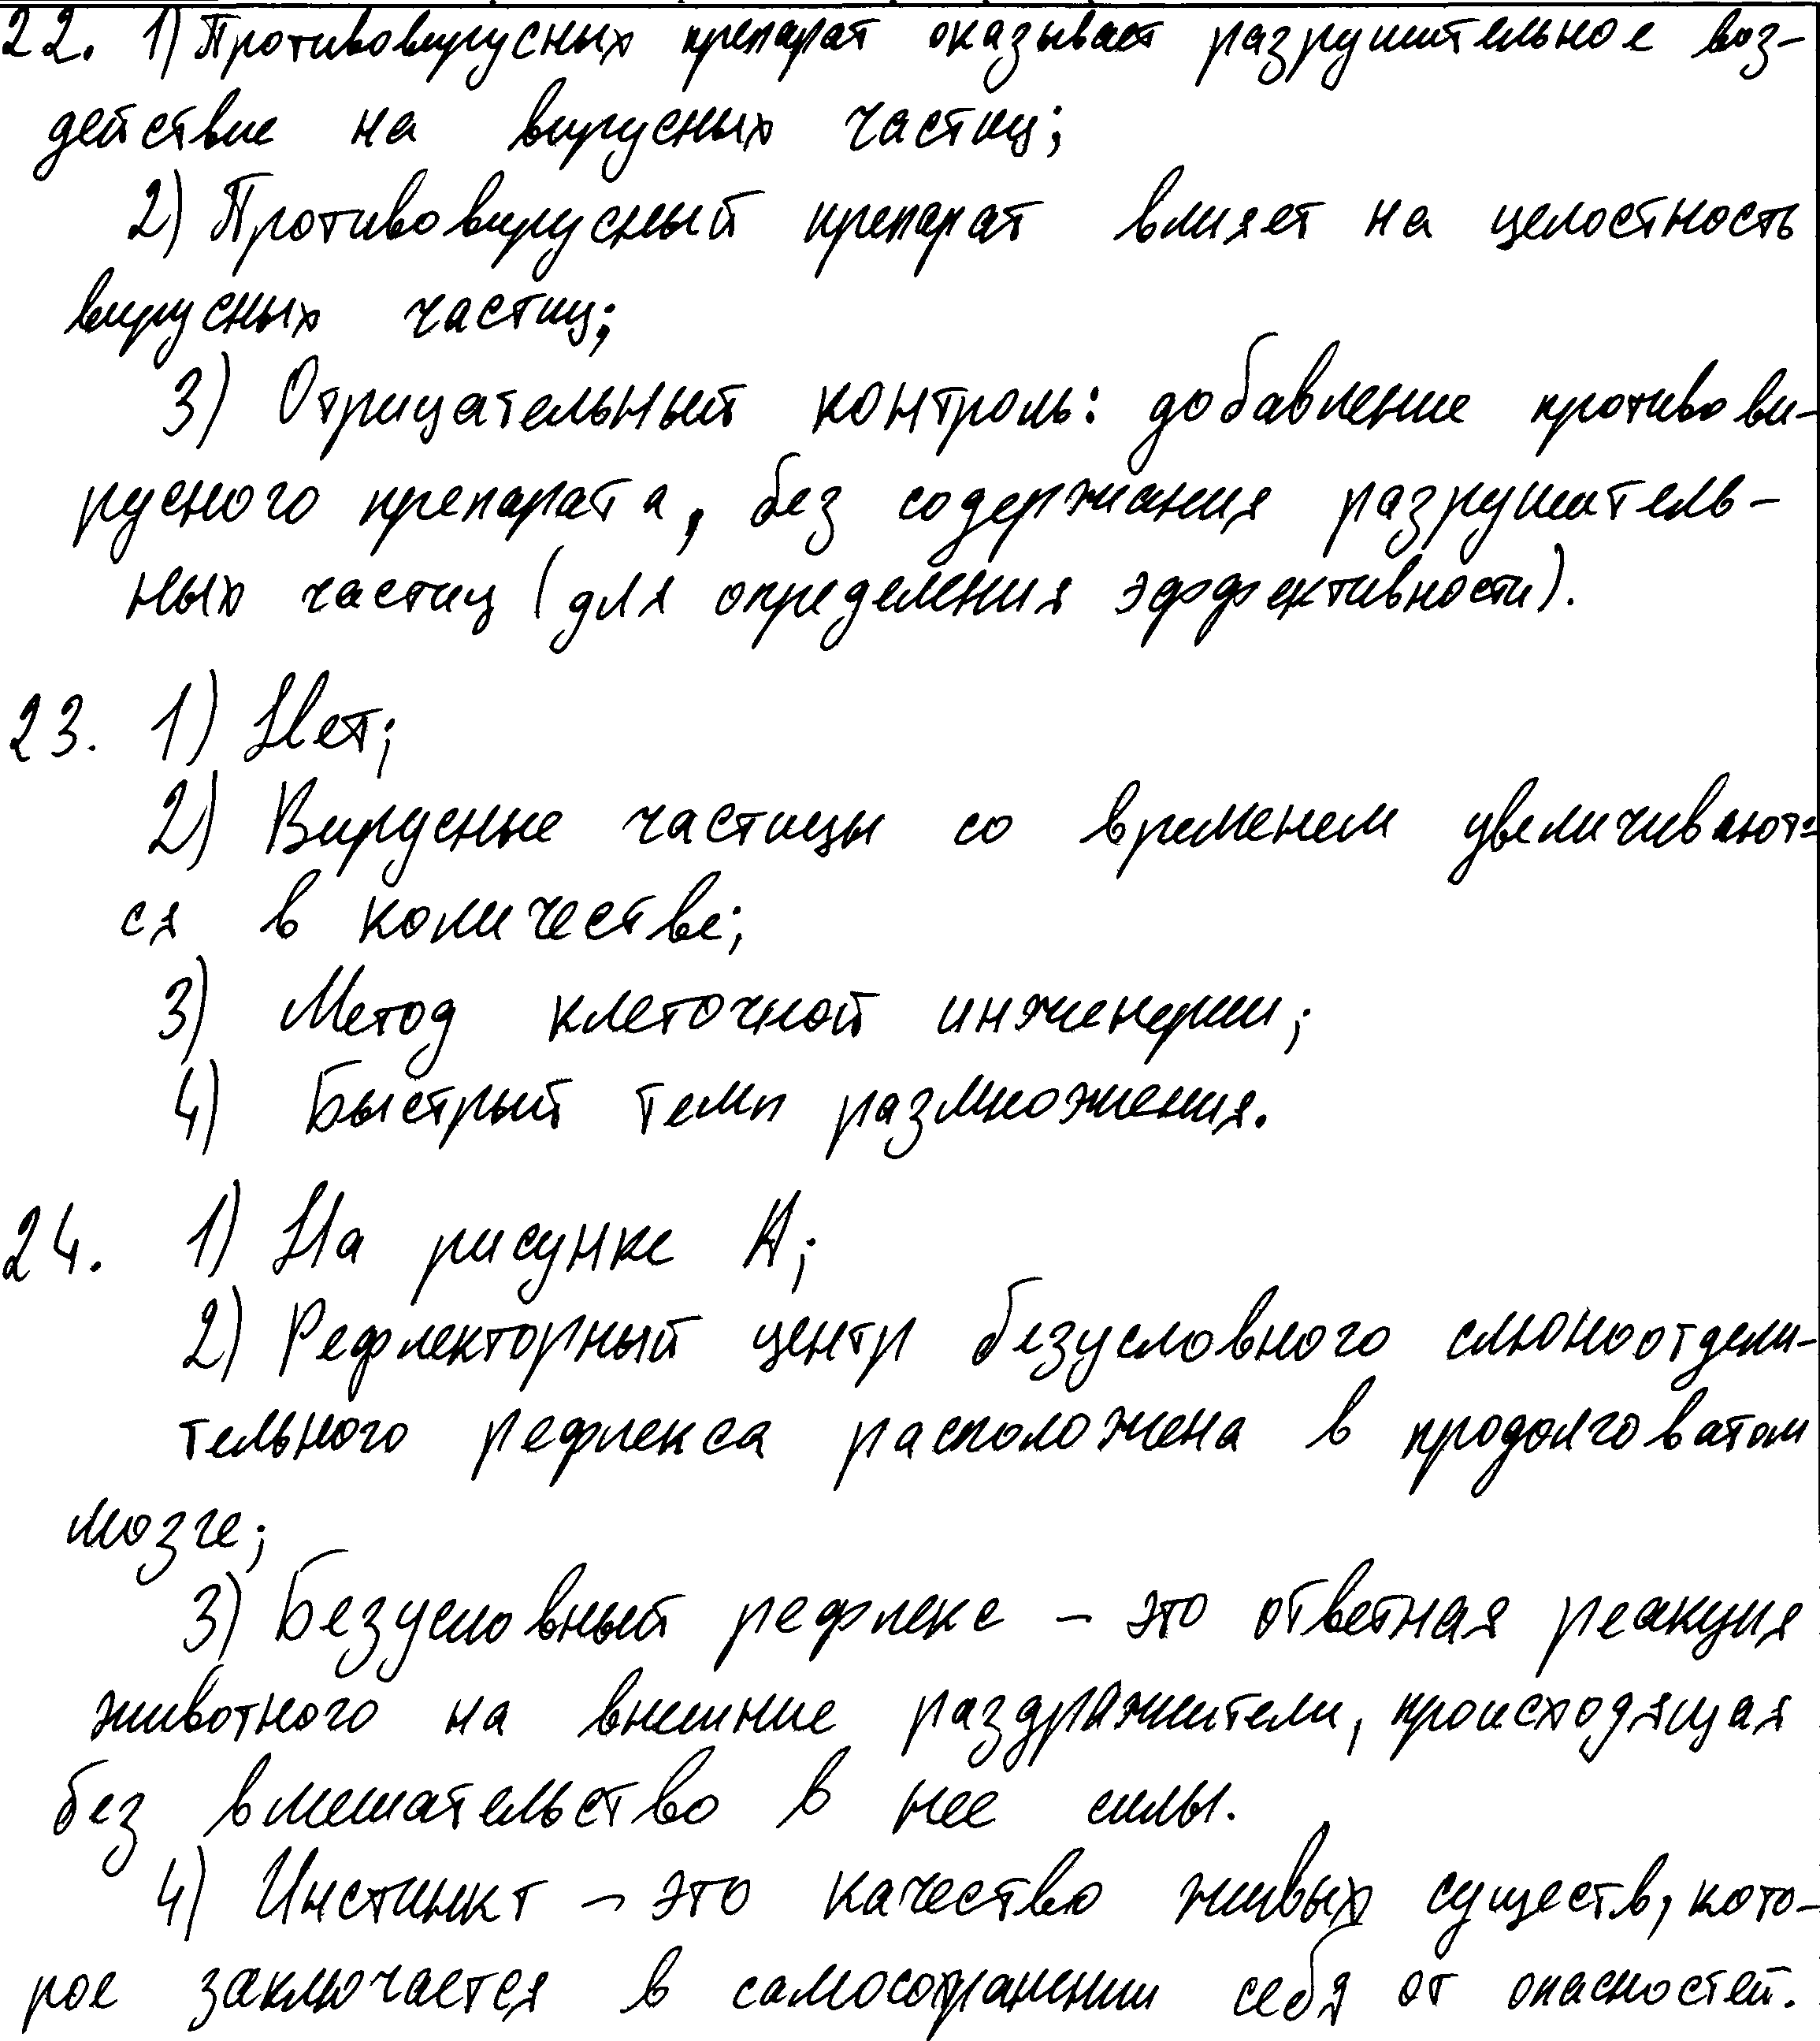 22. 1) Противовирусных препарат оказывает разрушительное воз-
действие на вирусных частиц;
2) Противовирусный препарат влияет на целостность
вирусных частиц;
3) Отрицательный контроль: добавление противови-
русного препарата, без содержания разрушитель-
ных частиц (для определения эффективности).
23. 1) Нет;
2) Вирусные частицы со временем увеличивают-
ся в количестве;
3) Метод клеточной инженерии;
4) Быстрый темп размножения.
24. 1) На рисунке А;
2) Рефлекторный центр безусловного слюноотдели-
тельного рефлекса расположена в продолговатом
мозге;
3) Безусловный рефлекс – это ответная реакция
животного на внешние раздражители, происходящая
без вмешательство в нее силы.
4) Инстинкт – это качество живых существ, кото-
рое заключается в самосохранении себя от опасностей.